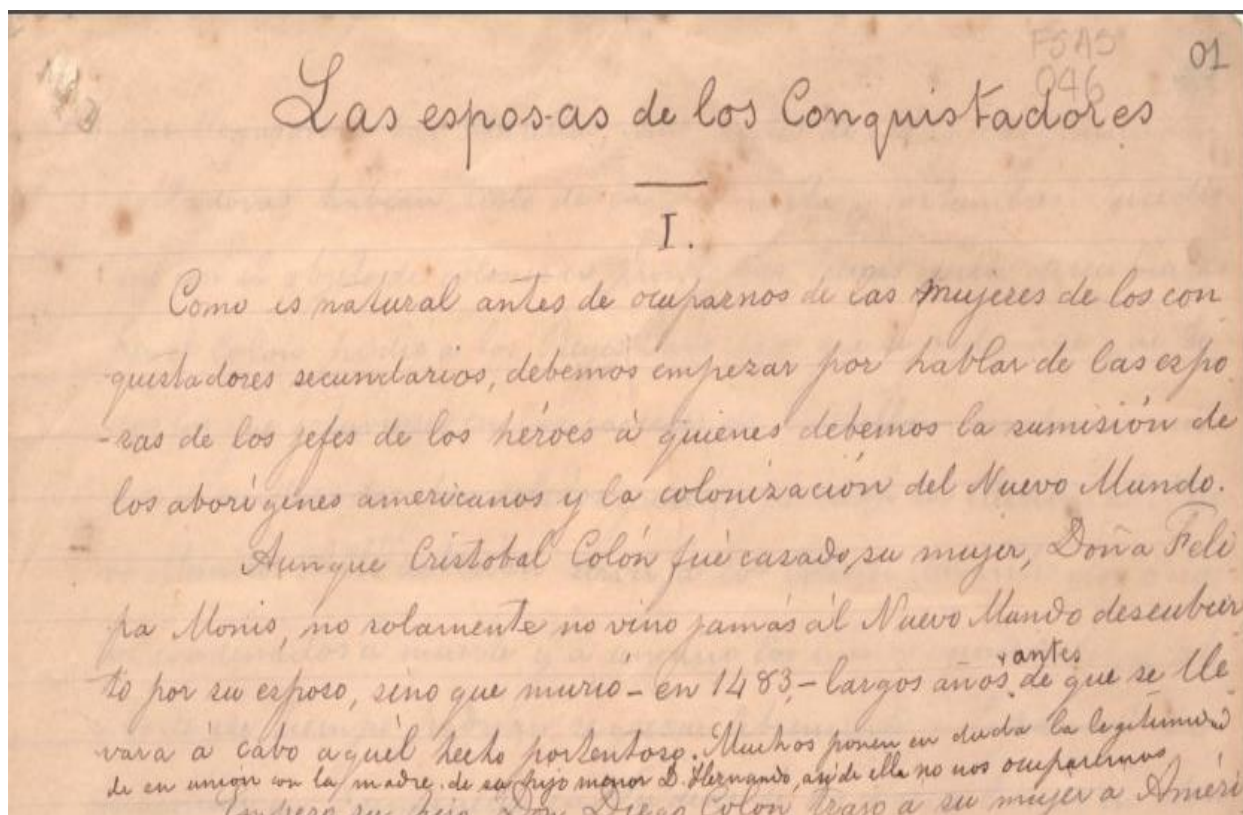 FSAS
046
01
Las esposas de los Conquistadores
I.
Como es natural antes de ocuparnos de las mujeres de los con
quistadores secundarios, debemos empezar por hablar de las espo
-sas de los jefes de los héroes à quienes debemos la sumisión de
los aborígenes americanos y la colonización del Nuevo Mundo.
Aunque Cristobal Colón fué casado, su mujer, Doña Feli
pa Monis, no solamente no vino jamás al Nuevo Mundo descubier
to por su esposo, sino que murió - en 1483 - largos años antes de que se lle
vara à cabo aquél hecho portentoso. Muchos ponen en duda la legitimidad
de en union con la madre de su hijo menor D. Hernando, así de ella no nos ocuparemos
Empero su hijo Don Diego Colon trajo a su mujer a Améri